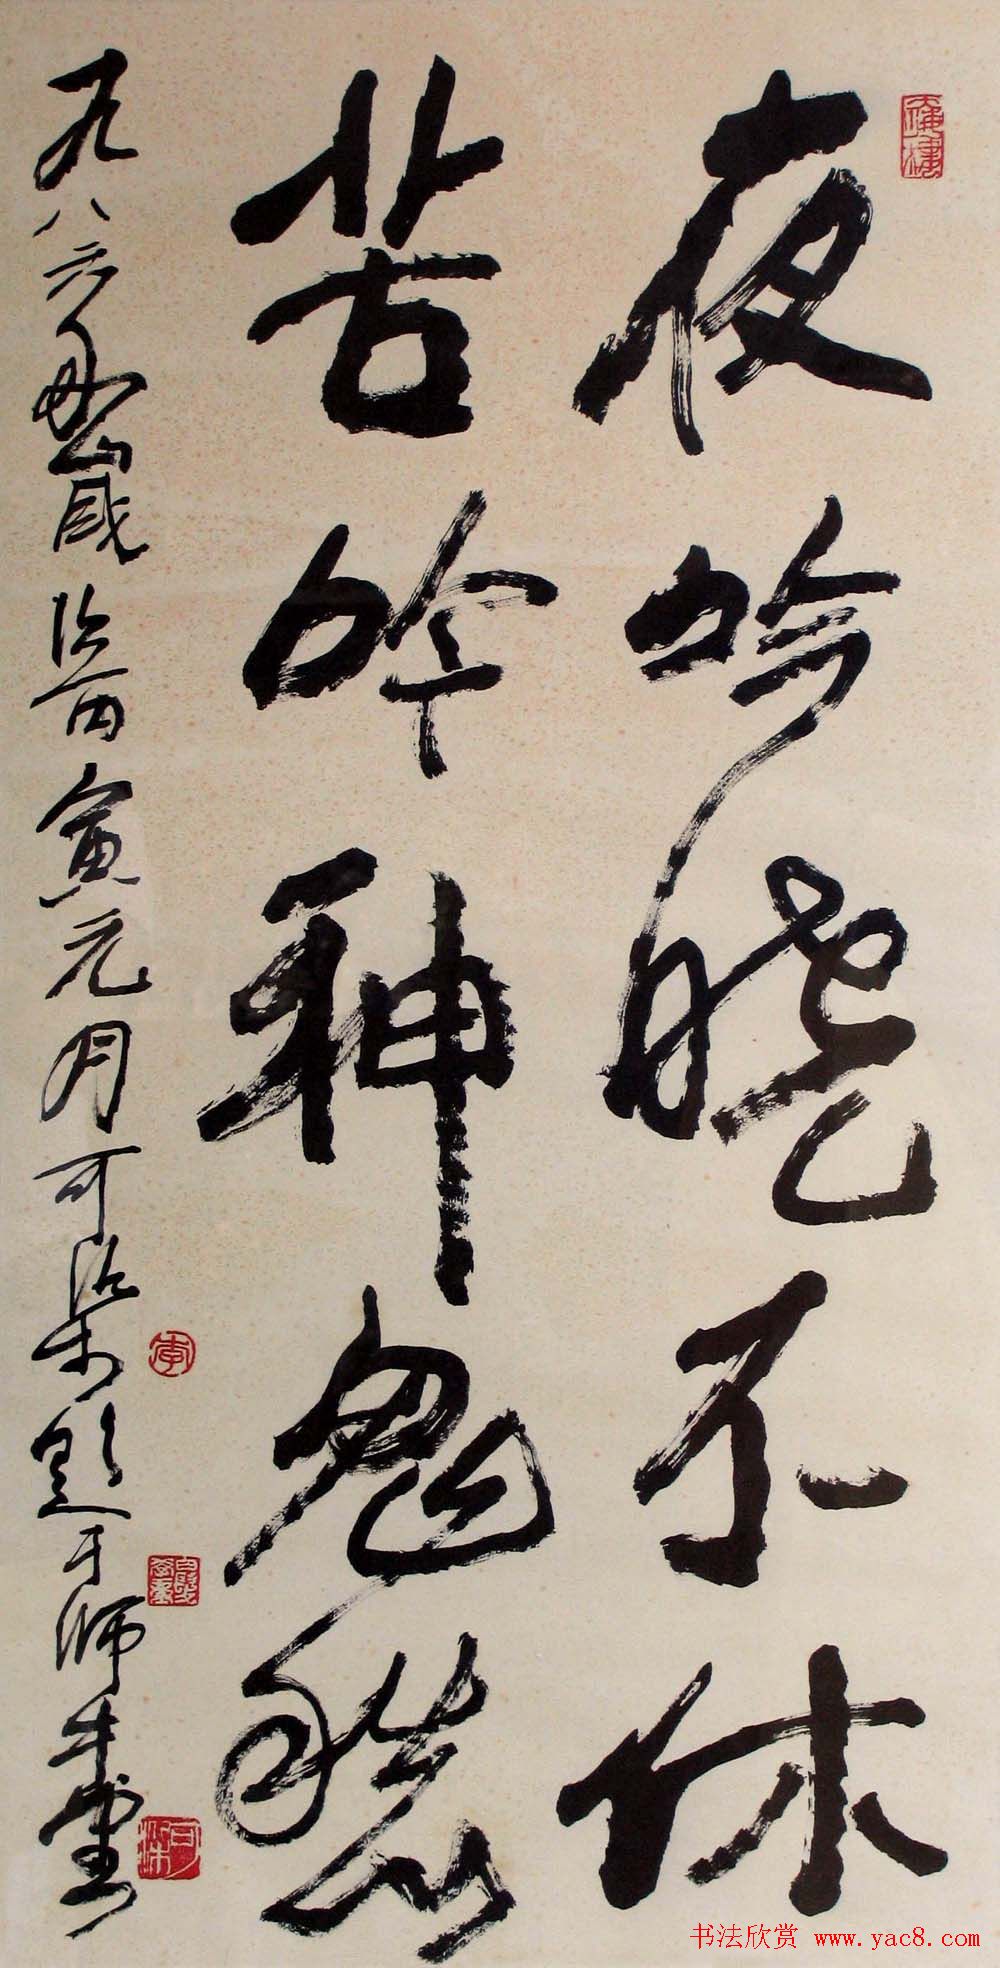 夜吟曉不休
苦吟神鬼愁
一九八六年歲丙寅元月可染題于師牛堂
李
可染
书法欣赏 www.yac8.com